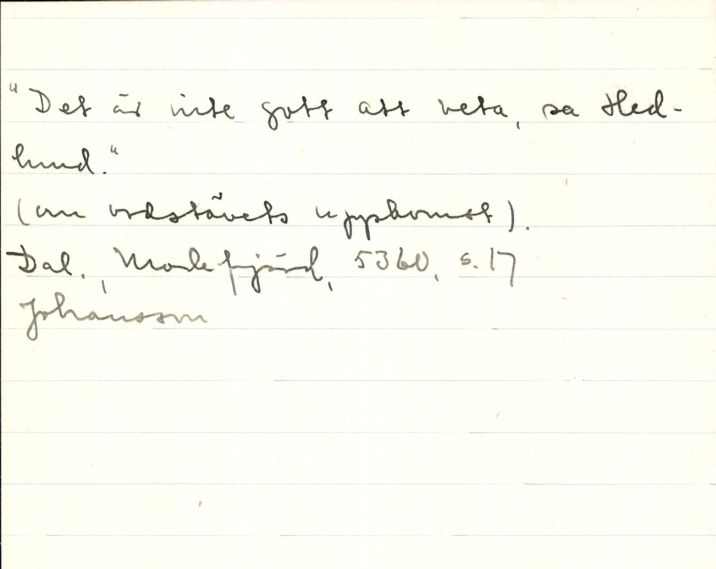 "Det är inte gott att veta, sa Hed-
lund."
(om ordstävets uppkomst).
Dal., 5360, s. 17
Johansson